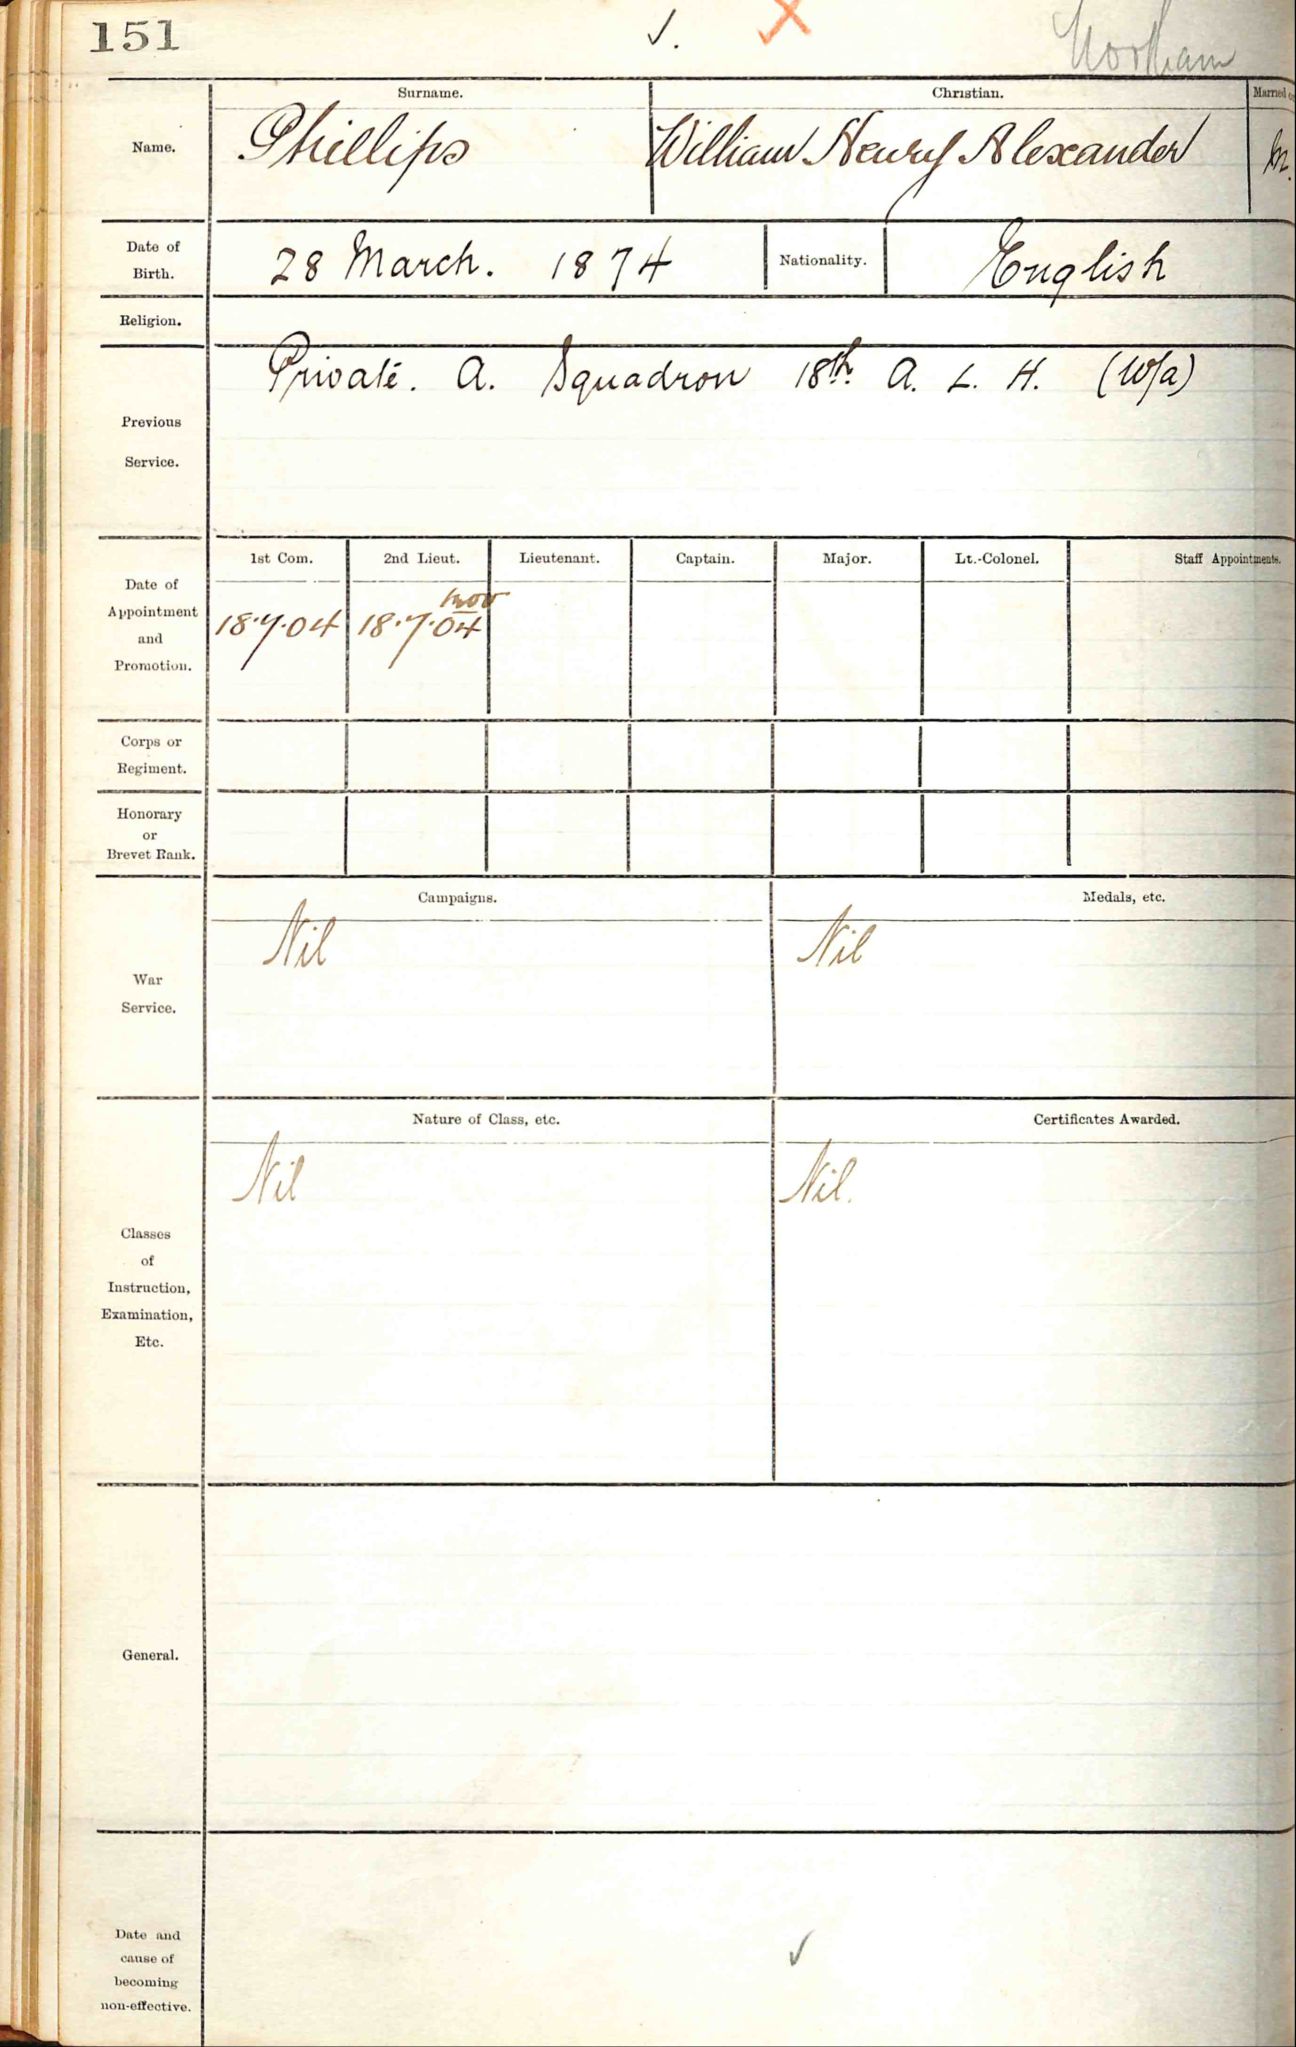 151
Northam
Surname.
Christian.
Married or
Name.
Phillips
William Henry Alexander
M.
Date of
Birth.
28 March. 1874
Nationality.
English
Religion.
Previous
Service.
Private. A. Squadron 18th. A. L. H. (W/a)
Date of
Appointment
and
Promotion.
1st Com.
2nd Lieut.
Lieutenant.
Captain.
Major.
Lt.-Colonel.
Staff Appointments.
18.7.04
prov
18.7.04
Corps or
Regiment.
Honorary
or
Brevet Rank.
War
Service.
Campaigns.
Medals, etc.
Nil
Nil
Classes
of
Instruction,
Examination,
Etc.
Nature of Class, etc.
Certificates Awarded.
Nil
Nil.
General.
Date and
cause of
becoming
non-effective.